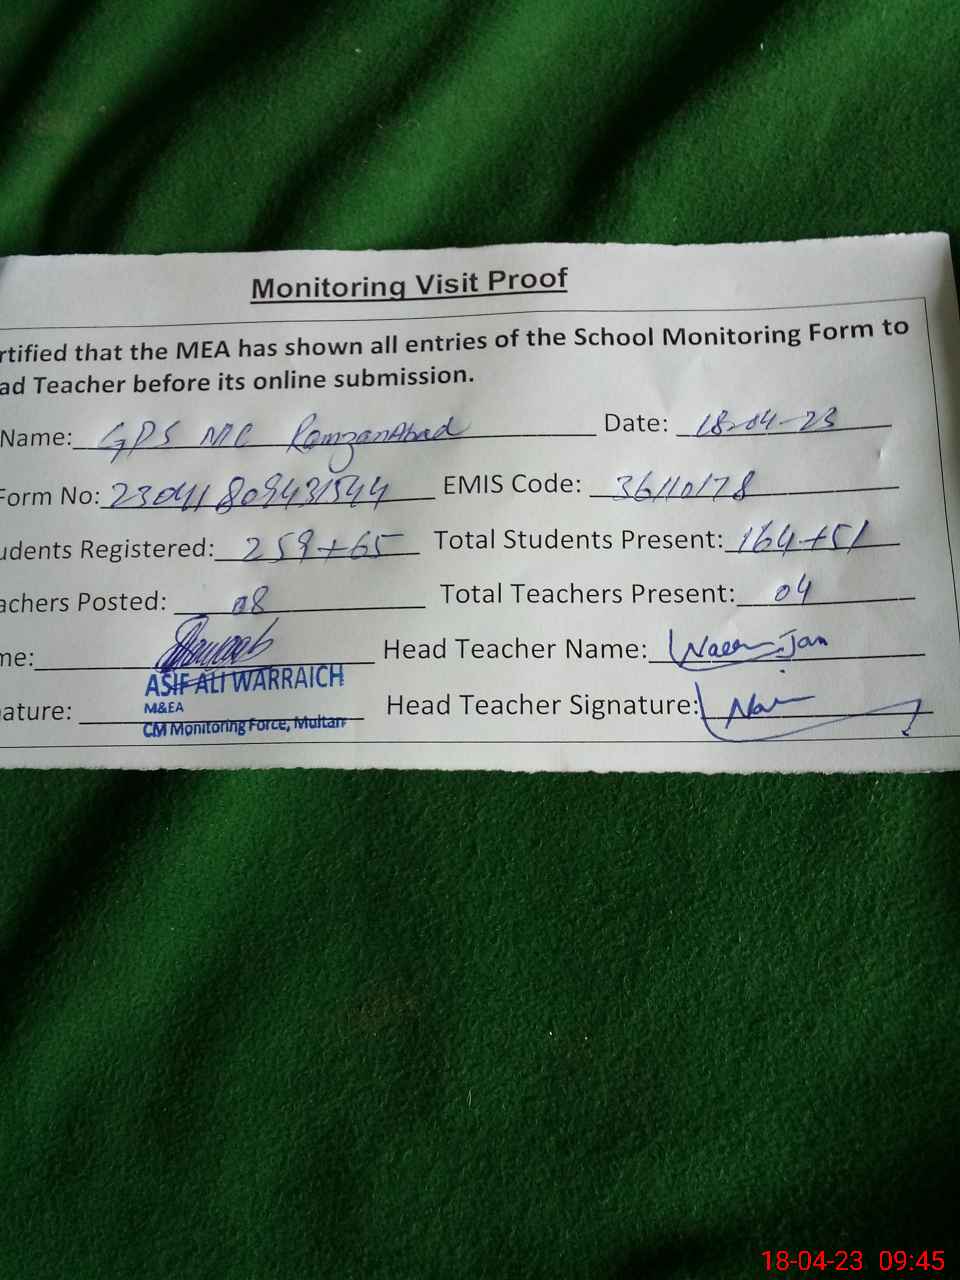 Monitoring Visit Proof
rtified that the MEA has shown all entries of the School Monitoring Form to
ad Teacher before its online submission.
Name: GPS MC RamzanAbad Date: 18-04-23
Form No: 230411809431544 EMIS Code: 36110178
udents Registered: 259+65 Total Students Present: 164+51
achers Posted: 08 Total Teachers Present: 04
me: Head Teacher Name: Naeem Jan
ASIF ALI WARRAICH
M&EA
ature: Head Teacher Signature:
CM Monitoring Force, Multan
18-04-23 09:45